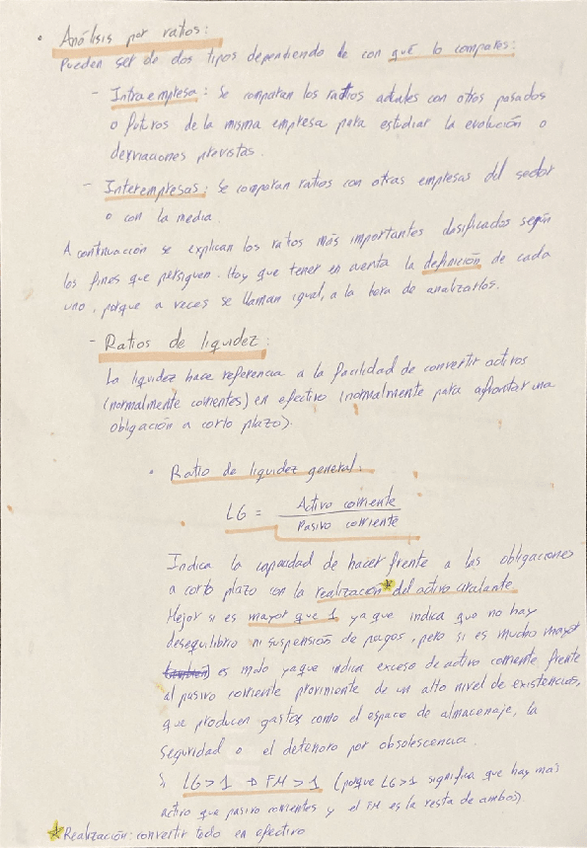 • Análisis por ratios:
Pueden ser de dos tipos dependiendo de con qué lo compares:
- Intraempresa: Se comparan los ratios actuales con otros pasados
o futuros de la misma empresa para estudiar la evolución o
desviaciones previstas.
- Interempresas: Se comparan ratios con otras empresas del sector
o con la media.
A continuación se explican los ratios más importantes clasificados según
los fines que persiguen. Hay que tener en cuenta la definición de cada
uno, porque a veces se llaman igual, a la hora de analizarlos.
- Ratios de liquidez:
La liquidez hace referencia a la facilidad de convertir activos
(normalmente corrientes) en efectivo (normalmente para afrontar una
obligación a corto plazo).
• Ratio de liquidez general:
LG = Activo corriente
Pasivo corriente
Indica la capacidad de hacer frente a las obligaciones
a corto plazo con la realización* del activo circulante.
Mejor si es mayor que 1 ya que indica que no hay
desequilibrio ni suspensión de pagos, pero si es mucho mayor
es malo ya que indica exceso de activo corriente frente
al pasivo corriente proviniente de un alto nivel de existencias,
que producen gastos como el espacio de almacenaje, la
seguridad o el deterioro por obsolescencia.
Si LG>1 → FM>1 (porque LG>1 significa que hay más
activo que pasivo corrientes y el FM es la resta de ambos).
* Realización: convertir todo en efectivo